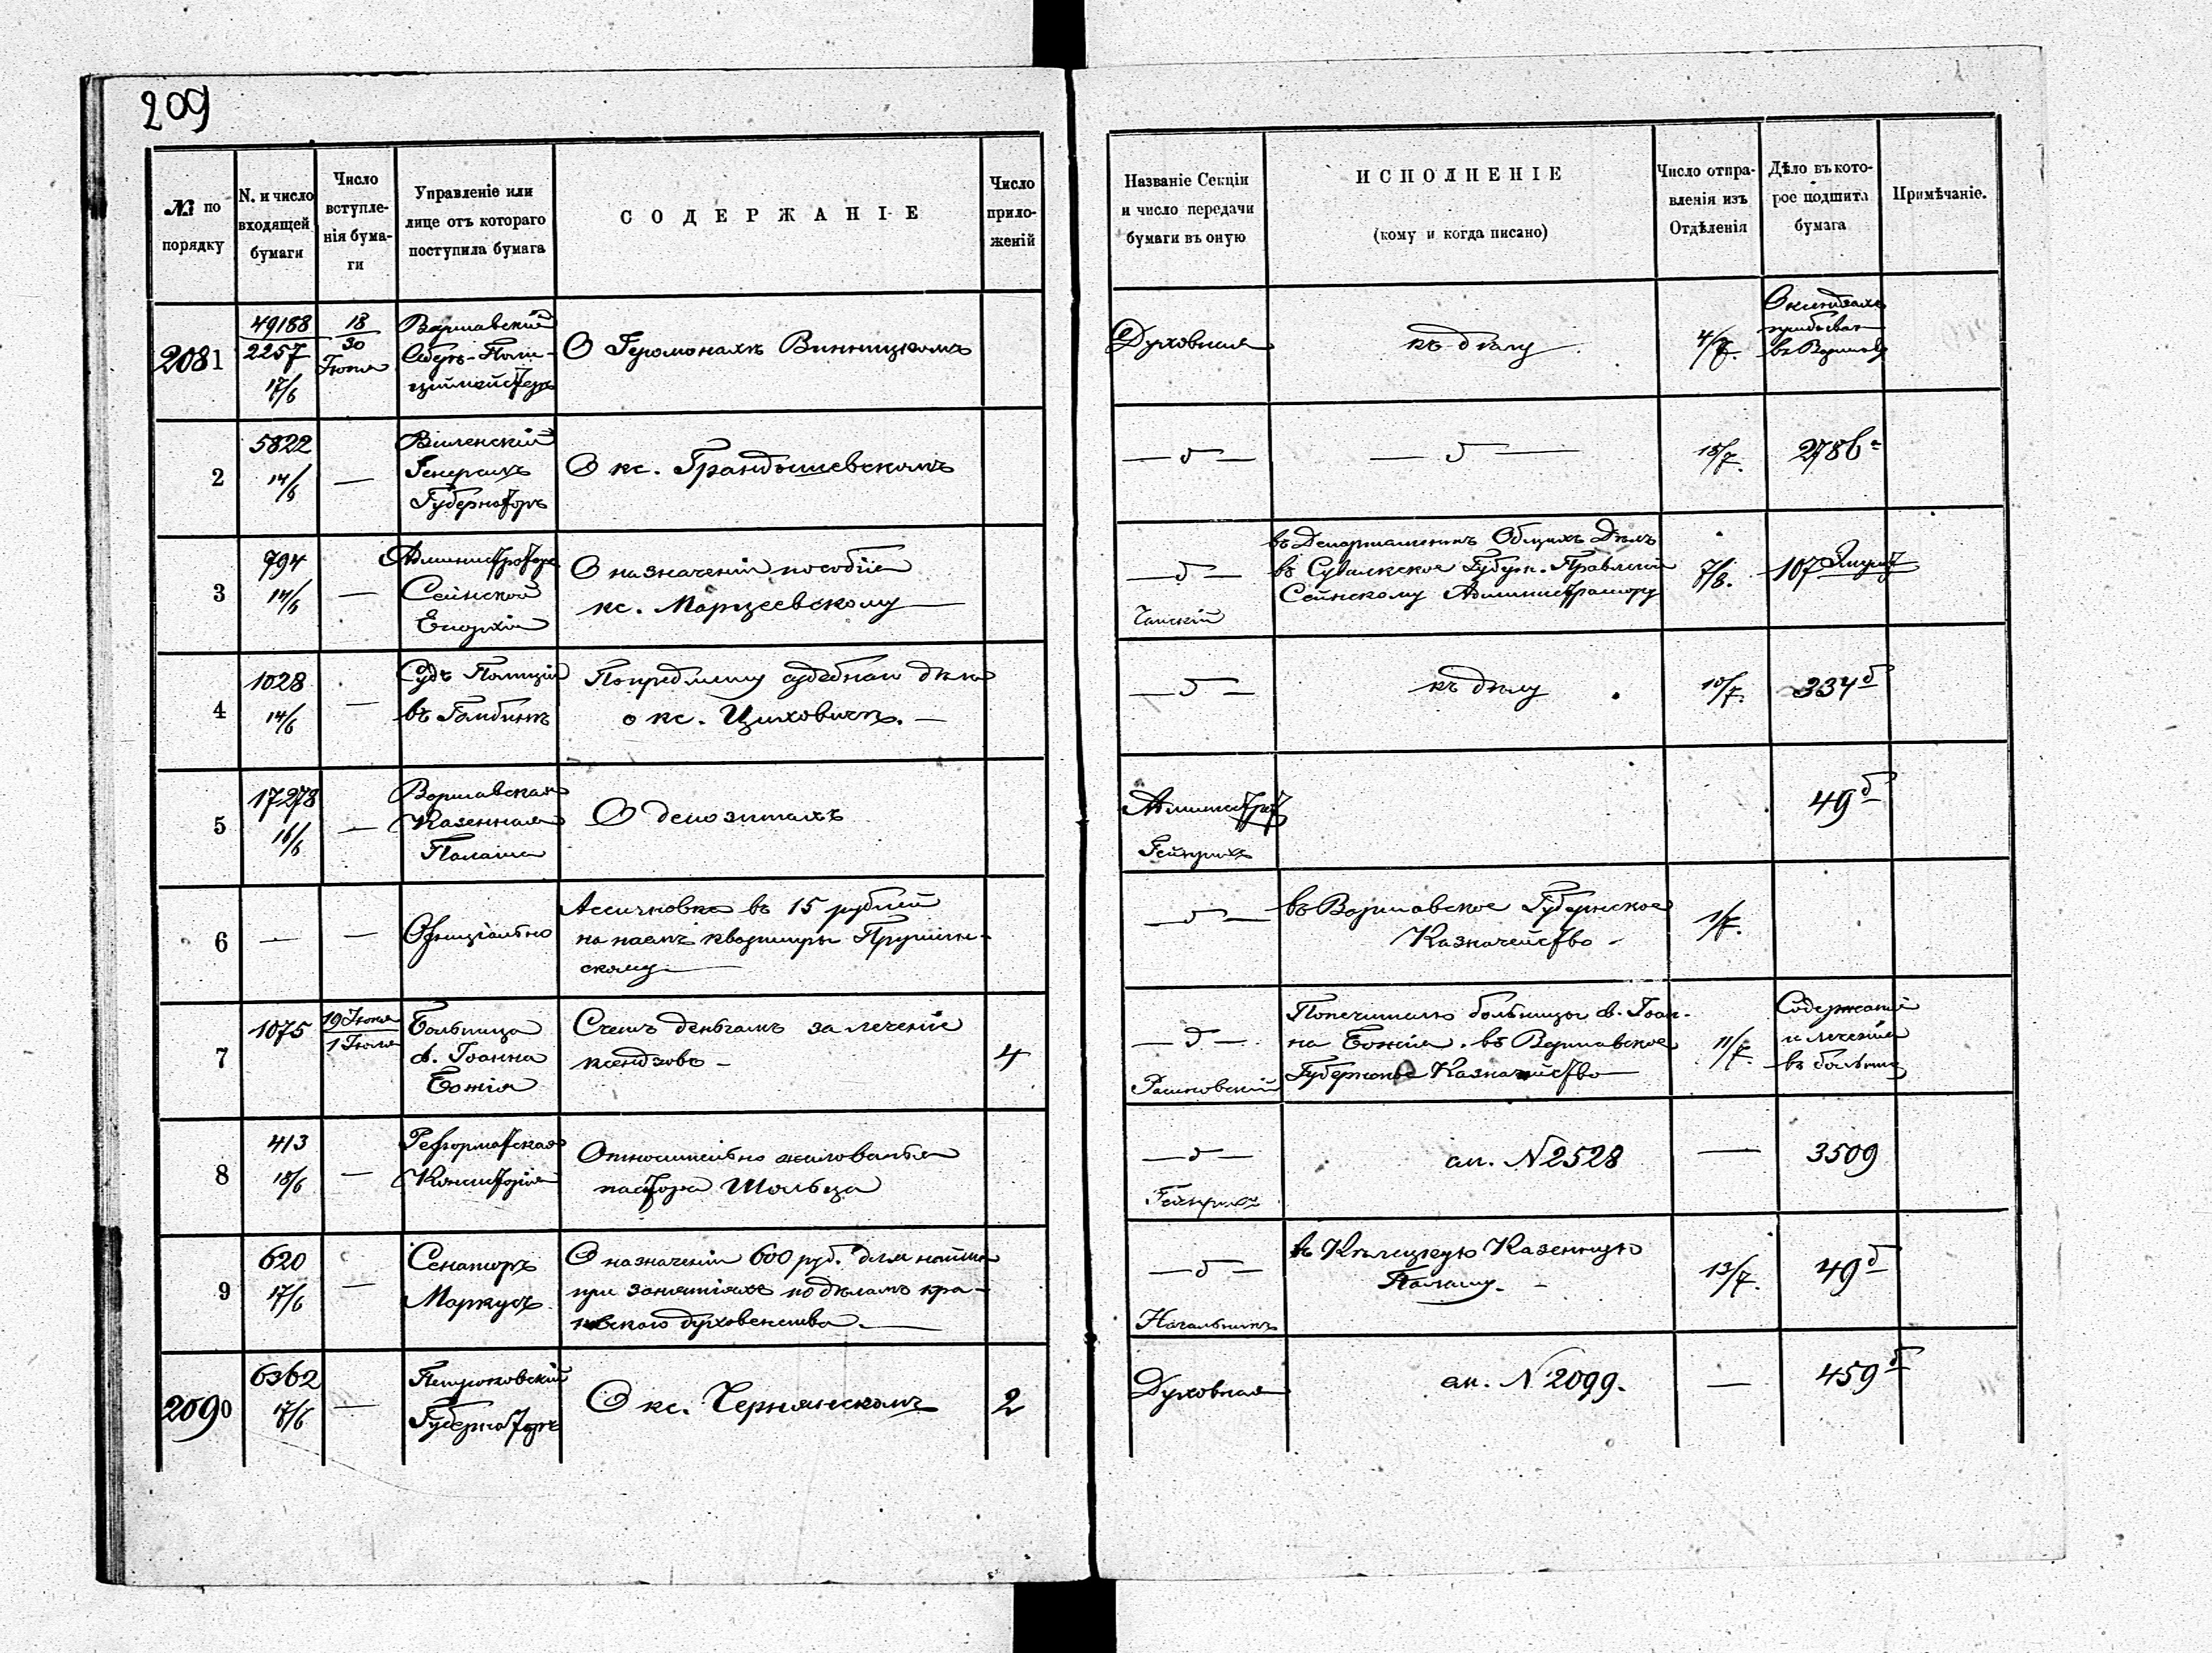 209
№ по порядку
N. и число входящей бумаги
Число вступленія бумаги
Управленіе или лице отъ котораго поступила бумага
СОДЕРЖАНІЕ
Число приложеній
Названіе Секціи и число передачи бумаги въ оную
ИСПОЛНЕНІЕ
(кому и когда писано)
Число отправленія изъ Отдѣленія
Дѣло въ которое подшита бумага
Примѣчаніе.
2081
49188
2257
17/6
18
30
Іюня
Варшавскій
Оберъ-Поли-
цiймейстеръ
О Іеромонахѣ Винницкомъ
Духовная
къ дѣлу
4/7.
въ Варшаву
2
5822
14/6
—
Виленскій
Генералъ
Губернаторъ
О кс. Грандышевскомъ
— д —
— д —
15/7.
278
3
794
14/6
—
Администраторъ
Сейнской
Епархіи
О назначеніи пособія
кс. Марцеевскому —
— д —
въ Департаментъ Общихъ Дѣлъ
въ Сувалкское Губерн. Правленіе
Сейнскому Администратору
7/8.
107
4
1028
14/6
—
Судъ Полиціи
въ Гомбинѣ
По предмету судебнаго дѣла
о кс. Циховичѣ. —
— д —
къ дѣлу
10/7.
334 б
5
17278
16/6
—
Варшавская
Казенная
Палата
О депозитахъ
Администрат
Гейнрихъ
49 б
6
—
—
Офиціально
Ассигновка въ 15 рублей
на наемъ квартиры Прушин-
скому —
— д —
въ Варшавское Губернское
Казначейство —
1/7.
7
1075
19 Іюня
1 Іюля
Больница
св. Іоанна
Божія
Счетъ деньгамъ за леченіе
ксендзовъ —
4
— д —
Рашковскій
Попечителю больницы св. Іоан-
на Божія. въ Варшавское
Губернское Казначейство —
11/7
Содержаніе
и леченіе
въ больниц
8
413
18/6
—
Реформатская
Консисторія
Относительно жалованья
пастора Шольца
— д —
Гейнрихъ
ап. N 2528
—
3509
9
620
17/6
—
Сенаторъ
Маркусъ
О назначеніи 600 руб. для найма
при занятіяхъ по дѣламъ кра-
ковскаго духовенства. —
— д —
Начальникъ
въ Кѣлецкую Казенную
Палату. —
13/7.
49 б
2090
6362
17/6
—
Петроковскій
Губернаторъ
О кс. Чернянскомъ
2
Духовная
ап. N 2099.
—
459 б